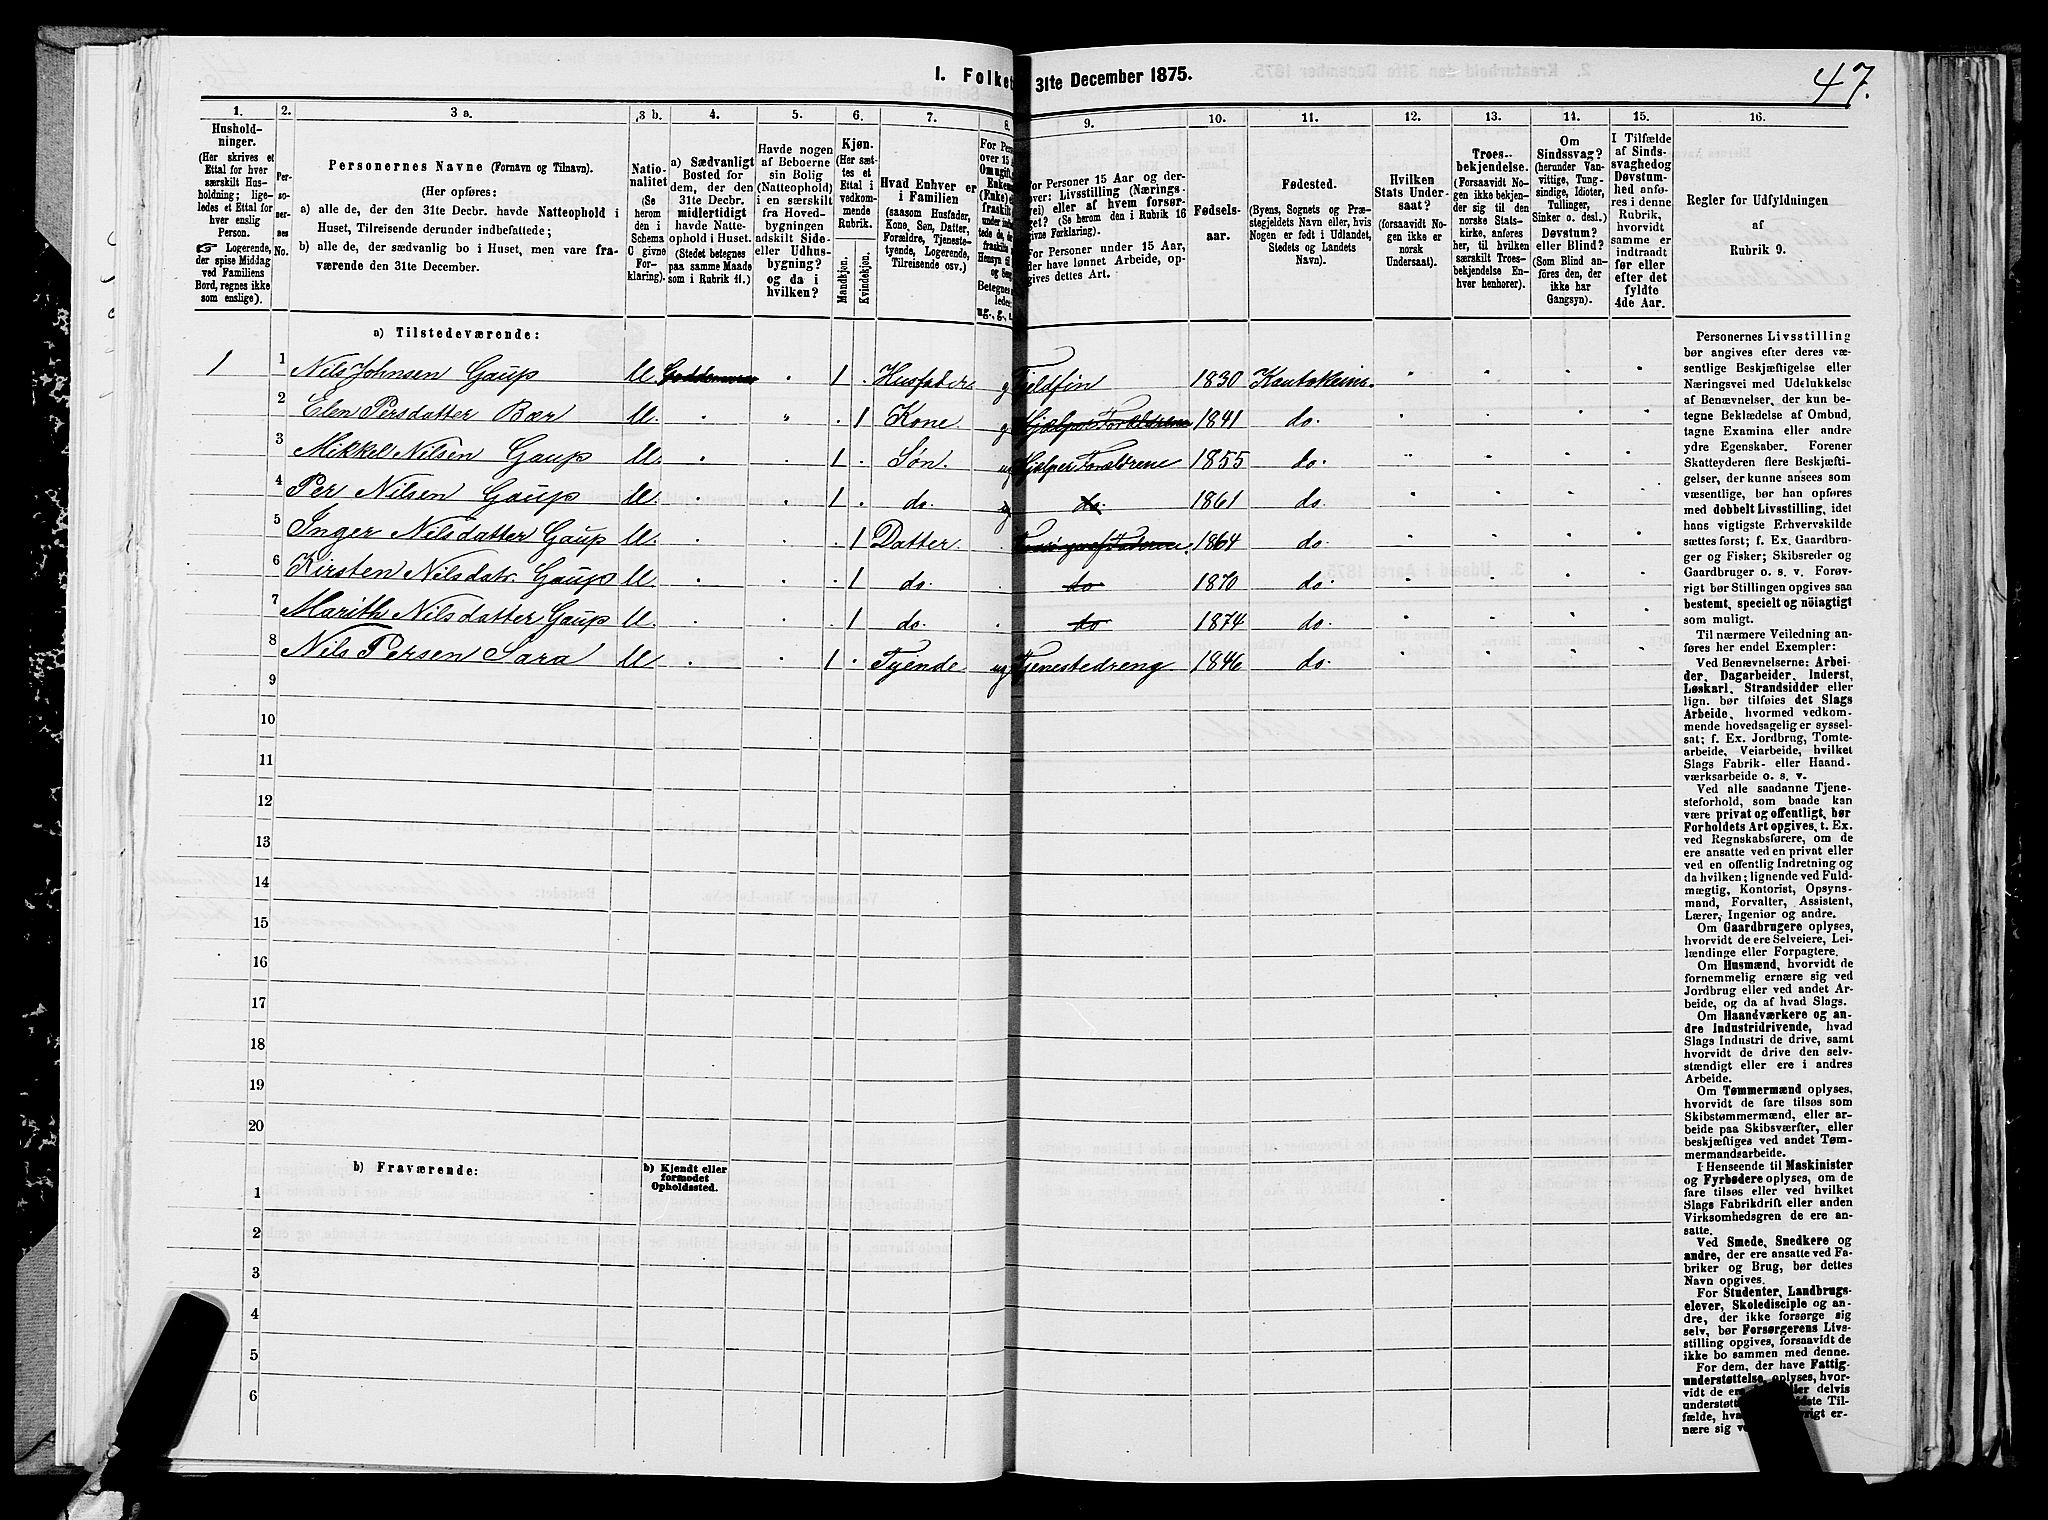 I. Folket 31te December 1875.
47.
1. 2. 3 a. 3 b. 4. 5. 6. 7. 8. 9. 10. 11. 12. 13. 14. 15. 16.
Hushold-
ninger.
(Her skrives et
Ettal for hver
særskilt Hus-
holdning; lige-
ledes et Ettal for
hver enslig
Person.
☞ Logerende,
der spise Middag
ved Familiens
Bord, regnes ikke
som enslige).
Per-
so-
ner-
nes
No.
Personernes Navne (Fornavn og Tilnavn).
(Her opføres:
a) alle de, der den 31te Decbr. havde Natteophold i
Huset, Tilreisende derunder indbefattede;
b) alle de, der sædvanlig bo i Huset, men vare fra-
værende den 31te December.
Natio-
nalitet
(Se
herom
den i
Schema
C givne
For-
klaring).
a) Sædvanligt
Bosted for
dem, der den
31te Decbr.
midlertidigt
havde Natte-
ophold i Huset.
(Stedet betegnes
paa samme Maade
som i Rubrik 11.)
Havde nogen
af Beboerne
sin Bolig
(Natteophold)
i en særskilt
fra Hoved-
bygningen
adskilt Side-
eller Udhus-
bygning?
og da i
hvilken?
Kjøn.
(Her sæt-
tes et
Ettal i
vedkom-
mende
Rubrik.
Mandkjøn.
Kvindekjøn.
Hvad Enhver er
i Familien
(saasom Husfader,
Kone, Søn, Datter,
Forældre, Tjeneste-
tyende, Logerende,
Tilreisende osv.)
For Personer 15 Aar og der-
over: Livsstilling (Nærings-
vei) eller af hvem forsør-
get? (Se herom den i Rubrik 16
givne Forklaring).
For Personer under 15 Aar,
der have lønnet Arbeide, op-
gives dettes Art.
Fødsels-
aar.
Fødested.
(Byens, Sognets og Præ-
stegjeldets Navn eller, hvis
Nogen er født i Udlandet,
Stedets og Landets
Navn).
Hvilken
Stats Under-
saat?
(forsaavidt No-
gen ikke er
norsk
Undersaat).
Troes-
bekjendelse.
(Forsaavidt No-
gen ikke bekjen-
der sig til den
norske Stats-
kirke, anføres
her, til hvilken
særskilt Troes-
bekjendelse En-
hver henhører).
Om
Sindssvag?
(herunder Van-
vittige, Tung-
sindige, Idioter,
Tullinger,
Sinker o. desl.)
Døvstum?
eller Blind?
(Som Blind an-
føres den, der
ikke har
Gangsyn).
I Tilfælde
af Sinds-
svaghedog
Døvstum-
hed anfø-
res i denne
Rubrik,
hvorvidt
samme er
indtraadt
før eller
efter det
fyldte
4de Aar.
Regler for Udfyldningen
af
Rubrik 9.
a) Tilstedeværende:
1 1 Nils Johnsen Gaup U. 1 Husfader g Fjeldfin 1830 Kautokeino
2 Elen Persdatter Bær U. 1 Kone g Hjælper Forældrene 1841 do.
3 Mikkel Nilsen Gaup U. 1 Søn. ug Hjælper Forældrene 1855 do.
4 Per Nilsen Gaup U. 1 do. ug do. 1861 do.
5 Inger Nilsdatter Gaup U. 1 Datter. 1864 do.
6 Kirsten Nilsdatr. Gaup U. 1 do. do 1870 do.
7 Marith Nilsdatter Gaup U. 1 do. do 1874 do.
8 Nils Persen Sara U. 1 Tyende ug Tjenestedreng 1846 do.
9
10
11
12
13
14
15
16
17
18
19
20
b) Fraværende:
b) Kjendt eller
formodet
Opholdssted.
1
2
3
4
5
6
Personernes Livsstilling
bør angives efter deres væ-
sentlige Beskjæftigelse eller
Næringsvei med Udelukkelse
af Benævnelser, der kun be-
tegne Beklædelse af Ombud,
tagne Examina eller andre
ydre Egenskaber. Forener
Skatteyderen flere Beskjæfti-
gelser, der kunne ansees som
væsentlige, bør han opføres
med dobbelt Livsstilling, idet
hans vigtigste Erhvervskilde
sættes først; f. Ex. Gaardbru-
ger og Fisker; Skibsreder og
Gaardbruger o. s. v. Forøv-
rigt bør Stillingen opgives saa
bestemt, specielt og nöiagtigt
som muligt.
Til nærmere Veiledning an-
føres her endel Exempler:
Ved Benævnelserne: Arbei-
der, Dagarbeider, Inderst,
Løskarl, Strandsidder eller
lign. bør tilføies det Slags
Arbeide, hvormed vedkom-
mende hovedsagelig er syssel-
sat; f. Ex. Jordbrug, Tomte-
arbeide, Veiarbeide, hvilket
Slags Fabrik- eller Haand-
værksarbeide o. s. v.
Ved alle saadanne Tjene-
steforhold, som baade kan
være privat og offentligt, bør
Forholdets Art opgives, t. Ex.
ved Regnskabsførere, om de
ere ansatte ved en privat eller
ved en offentlig Indretning og
da hvilken; lignende ved Fuld-
mægtig, Kontorist, Opsyns-
mand, Forvalter, Assistent,
Lærer, Ingeniør og andre.
Om Gaardbrugere oplyses,
hvorvidt de ere Selveiere, Lei-
lændinge eller Forpagtere.
Om Husmænd, hvorvidt de
fornemmelig ernære sig ved
Jordbrug eller ved andet Ar-
beide, og da af hvad Slags.
Om Haandværkere og an-
dre Industridrivende, hvad
Slags Industri de drive, samt
hvorvidt de drive den selv-
stændigt eller ere i andres
Arbeide.
Om Tømmermænd oplyses,
hvorvidt de fare tilsøs som
Skibstømmermænd, eller ar-
beide paa Skibsværfter, eller
beskjæftiges ved andet Tøm-
mermandsarbeide.
I Henseende til Maskinister
og Fyrbødere oplyses, om de
fare tilsøs eller ved hvilket
Slags Fabrikdrift eller anden
Virksomhedsgren de ere an-
satte.
Ved Smede, Snedkere og
andre, der ere ansatte ved Fa-
briker og Brug, bør dettes
Navn opgives.
For Studenter, Landbrugs-
elever, Skoledisciple og an-
dre, der ikke forsørge sig
selv, bør Forsørgerens Livs-
stilling opgives, forsaavidt de
ikke bo sammen med denne.
For dem, der have Fattig-
understøttelse, oplyses, hvor-
vidt de ere